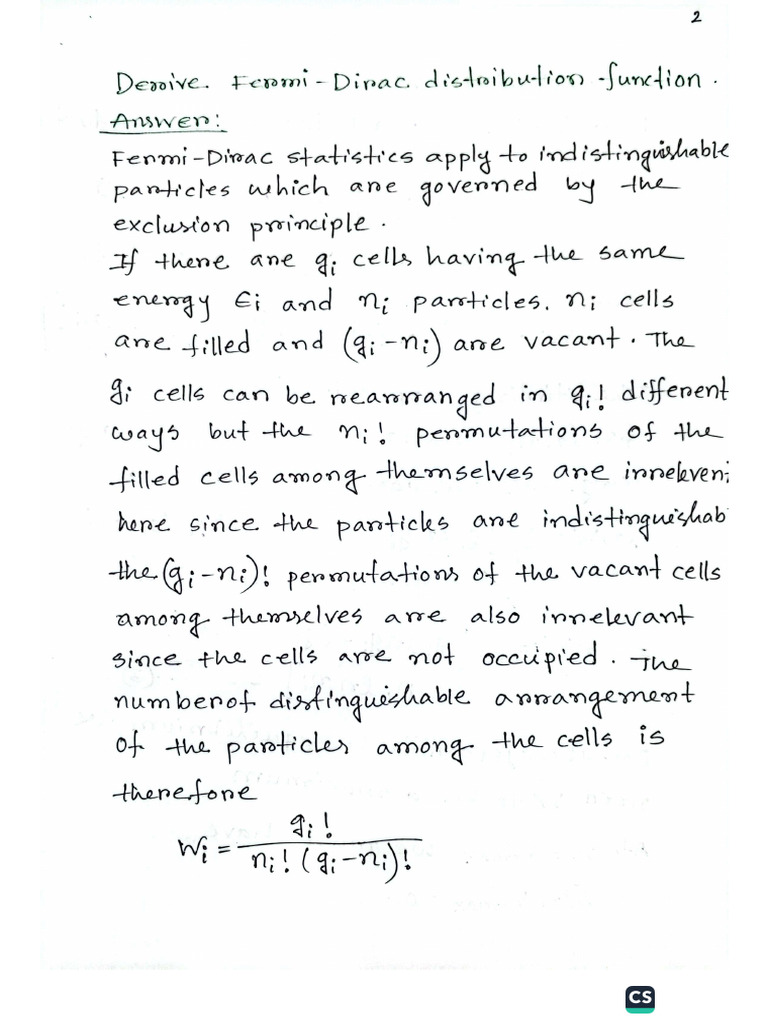 2
Derive Fermi-Dirac distribution function.
Answer:
Fermi-Dirac statistics apply to indistinguishable
particles which are governed by the
exclusion principle.
If there are gᵢ cells having the same
energy ϵᵢ and nᵢ particles. nᵢ cells
are filled and (gᵢ-nᵢ) are vacant. The
gᵢ cells can be rearranged in gᵢ! different
ways but the nᵢ! permutations of the
filled cells among themselves are irreleven
here since the particles are indistinguishab
the (gᵢ-nᵢ)! permutations of the vacant cells
among themselves are also irrelevant
since the cells are not occupied. The
number of distinguishable arrangement
of the particles among the cells is
therefore
Wᵢ = gᵢ! / nᵢ! (gᵢ-nᵢ)!
CS